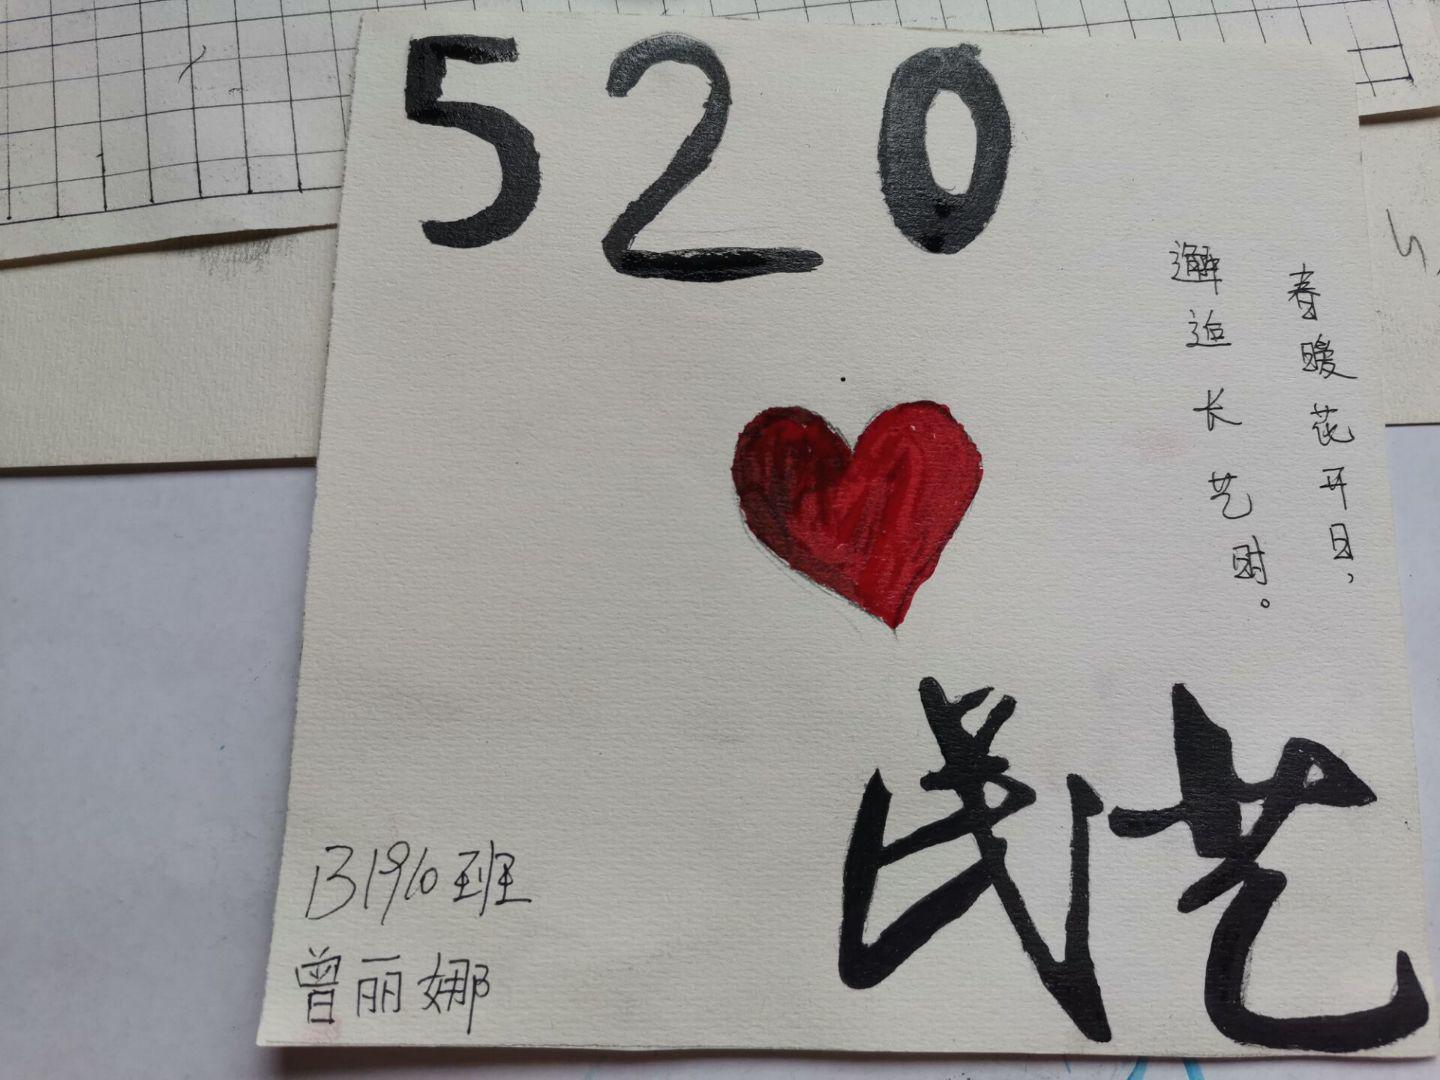 520
春暖花开日，
邂逅长艺时。
艺
B1910班
曾丽娜